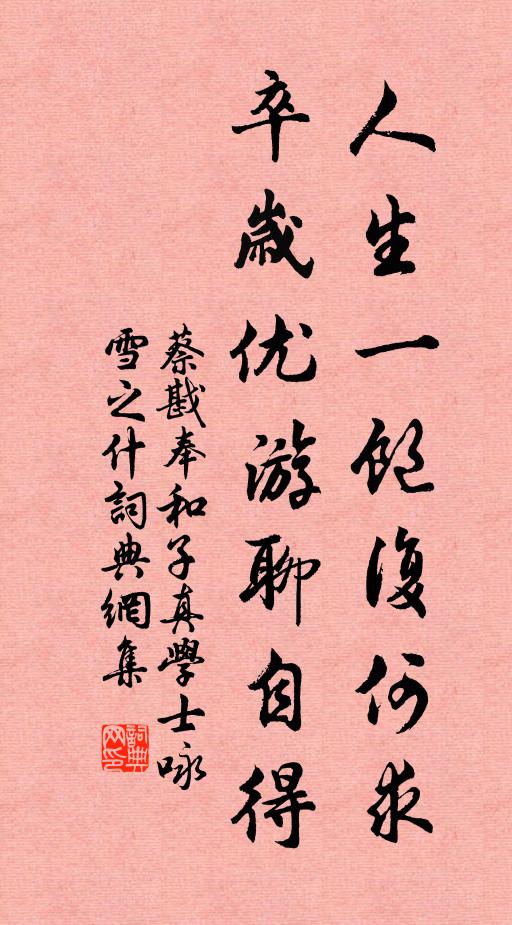 人生一饱復何求
卒歲优游聊自得
蔡戡奉和子真學士咏
雪之什詞典網集
詞典
网印